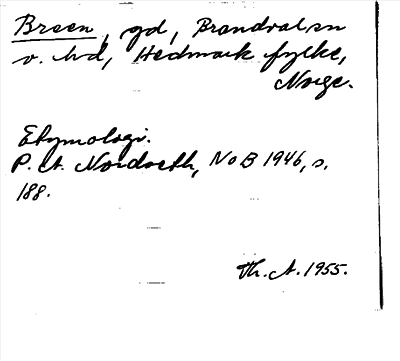 Breen, gd, Brandval sn
v. hd, Hedmark fylke,
Norge.
Etymologi.
P. A. Nordseth, NoB 1946, s.
188.
Th. A. 1955.